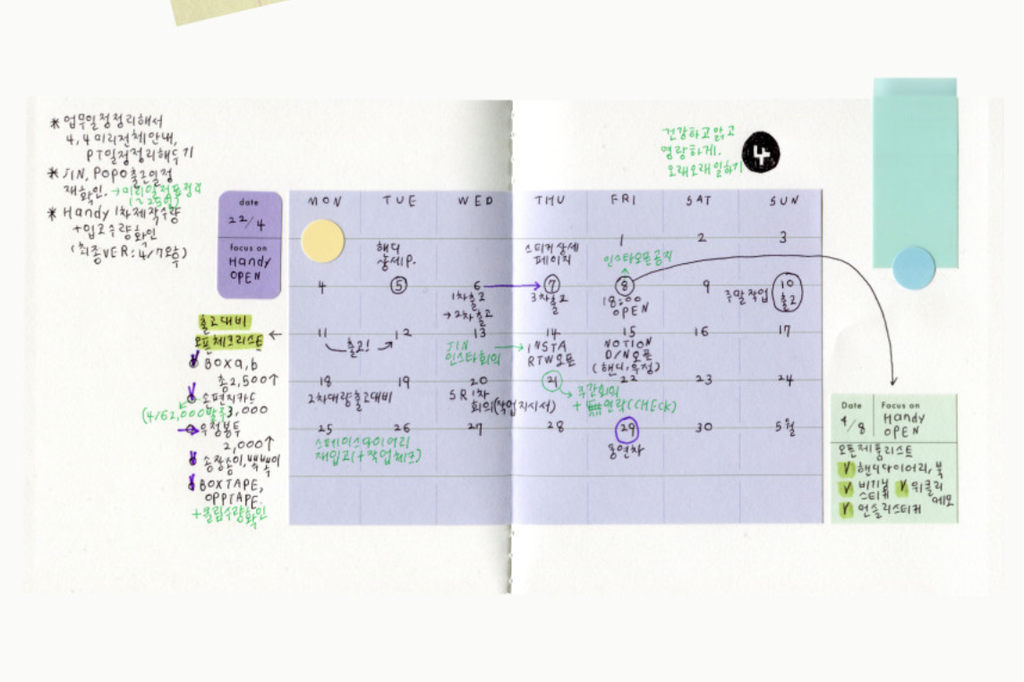 * 업무일정정리해서
4,4 미리전체안내,
PT일정정리해두기
* JIN, POPO출근일정
재확인. → 미리일정표정리
(~25일)
* Handy 1차제작수량
+입고수량확인
(최종VER : 4/7오후)
건강하고 맑고
명랑하게.
오래오래 일하기
4
date
22/4
focus on
HANDY
OPEN
MON TUE WED THU FRI SAT SUN
핸디
상세P.
스티커상세
페이지
1 2 3
인스타오픈공지
4 5 6 7 8 9 10
1차출고
→ 2차출고
3차출고
18:00
OPEN
주말작업
출고
11 12 13 14 15 16 17
출고!
JIN
인스타회의
INSTA
RTW오픈
NOTION
D/N오픈
(핸디,우정)
18 19 20 21 22 23 24
2차대량출고대비
SR 1차
회의(작업지시서)
주간회의
+ 연락(CHECK)
25 26 27 28 29 30 5월
스페이스다이어리
재입고(+작업체크)
홍연차
출고대비
오픈체크리스트 ←
BOX a,b
총2,500↑
손편지카드
(4/6 2,000발주) 3,000
우정봉투
2,000↑
송장종이,뽁뽁이
BOXTAPE,
OPPTAPE.
+클립수량확인
Date
4/8
Focus on
HANDY
OPEN
오픈제품리스트
핸디다이어리,북
비기닝
스티커
위클리
메모
먼슬리스티커